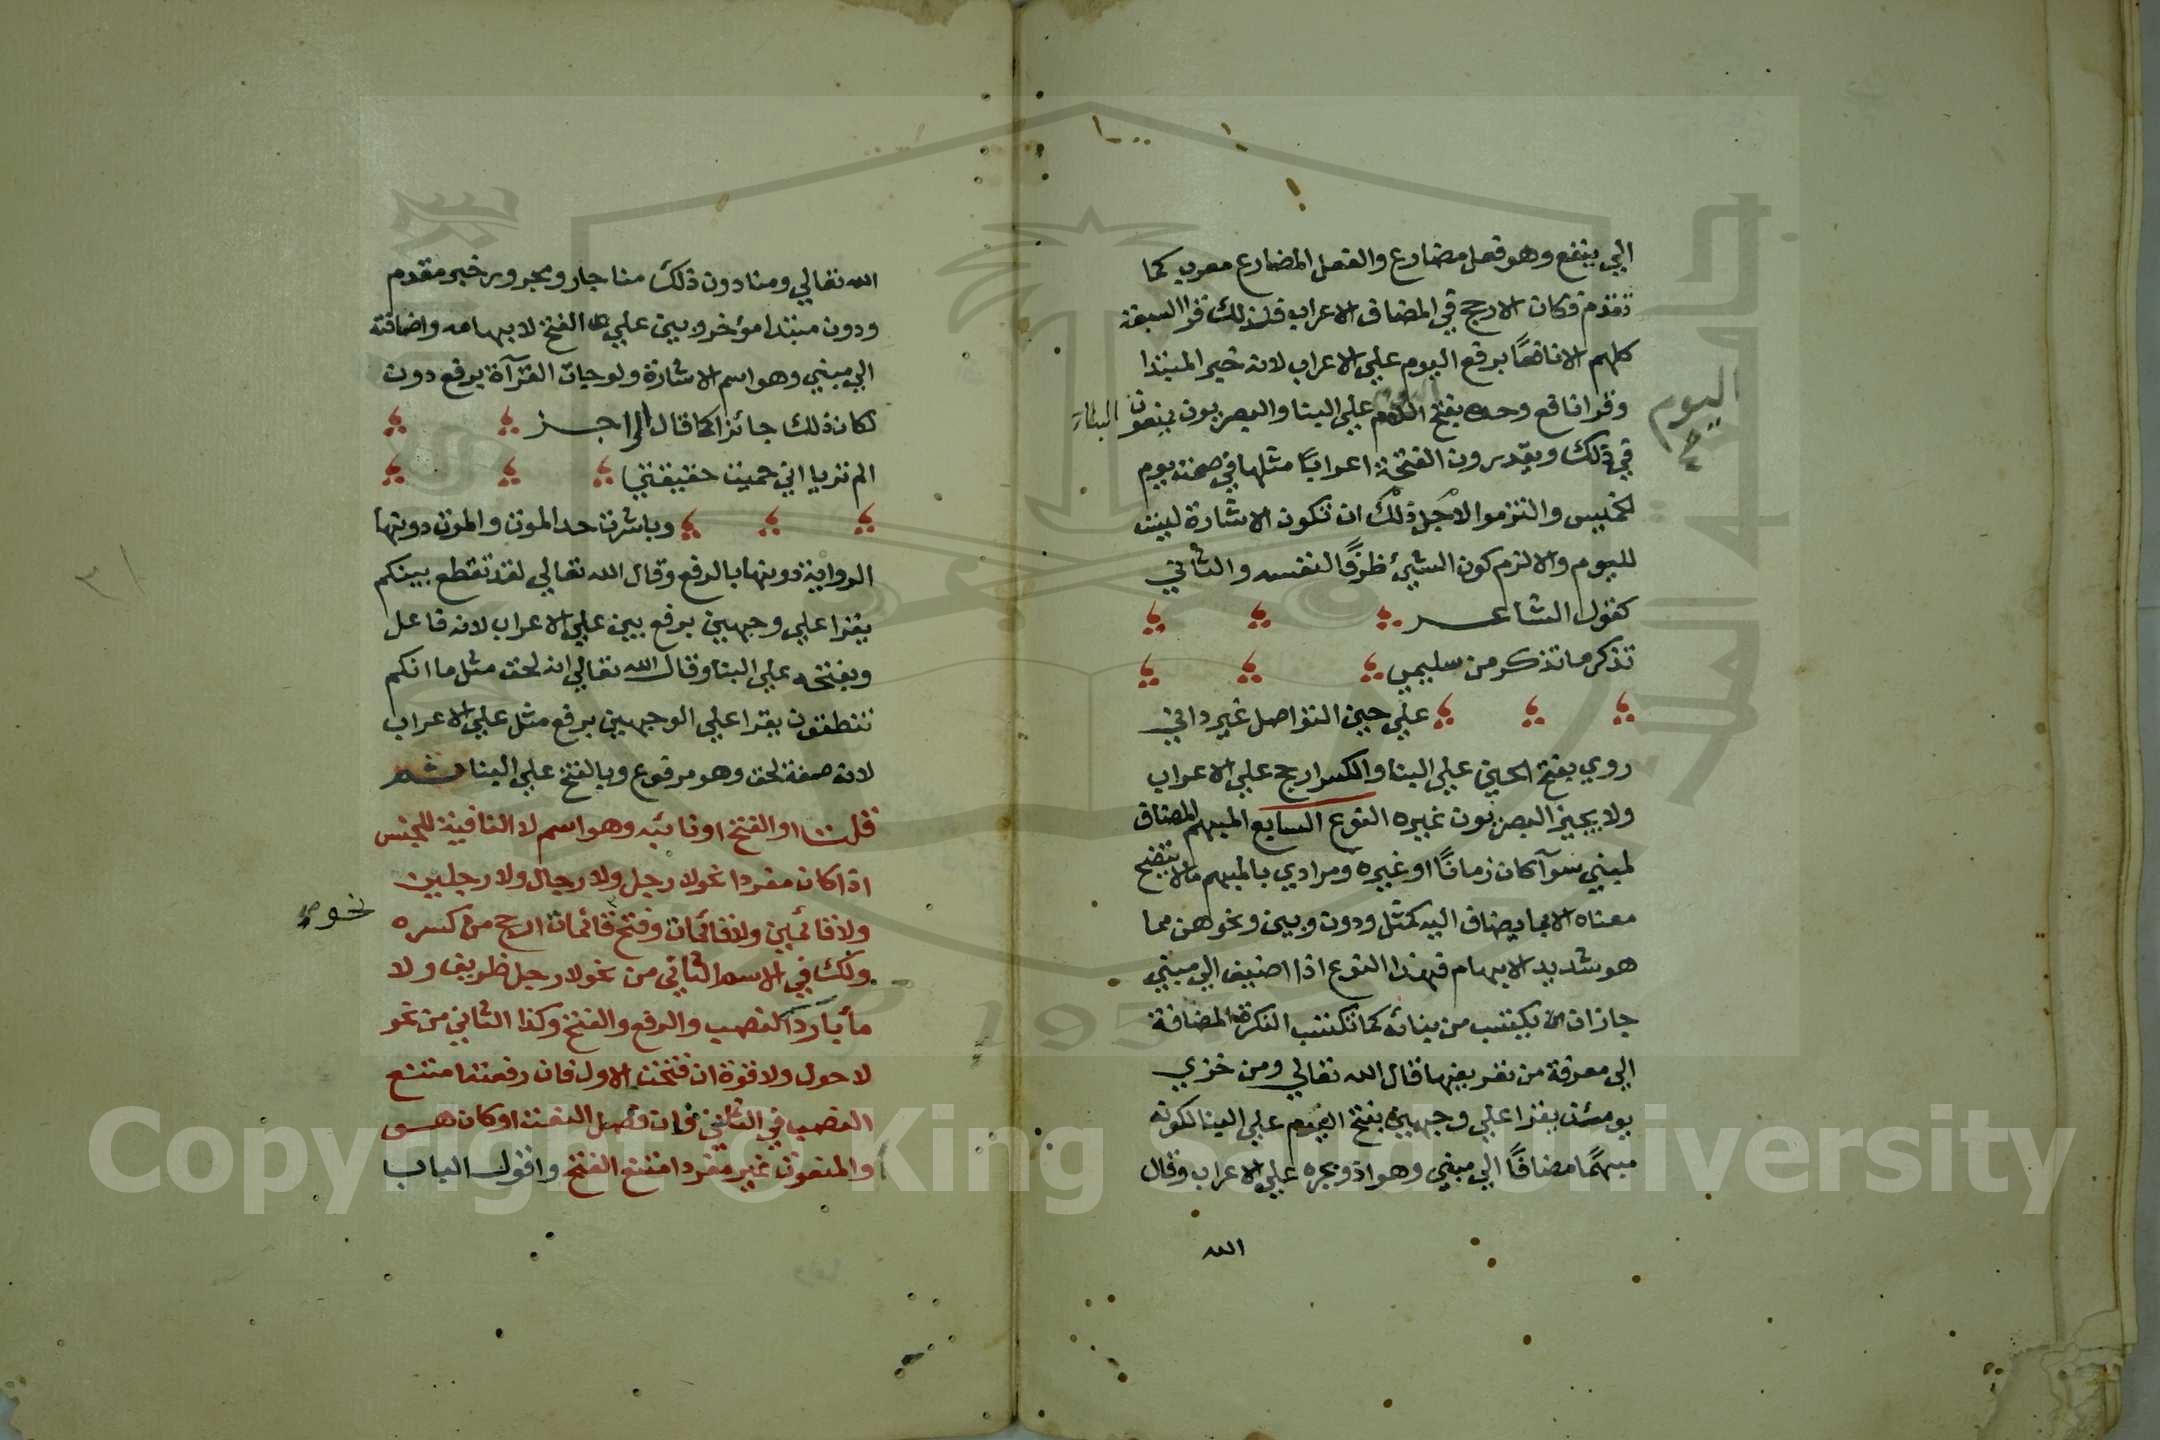 الي ينفع وهو فعل مضارع والفعل المضارع معرب كما
تقدم فكان الارجح في المضاف الاعراب فلذلك قرا السبعة
كلهم الا نافعًا برفع اليوم علي الاعراب لانه خبر المبتدا
وقرا نافع وحده بفتح اليوم علي البنا والبصريون يمنعون البنا
اليوم
في ذلك ويقدرون الفتحة اعرابًا مثلها في صمت يوم
لخميس والتزموا لاجل ذلك ان تكون الاشارة ليست
لليوم والا لزم كون الشيء ظرفًا لنفسه والثاني
كقول الشاعر
تذكر ما تذكر من سليمي
علي حين التواصل غير داني
روي بفتح الحين علي البنا والكسر ارجح علي الاعراب
ولا يجيز البصريون غيره النوع السابع المبهم المضاف
لمبني سوآ كان زمانًا او غيره ومرادي بالمبهم مالا يتضح
معناه الا بما يضاف اليه كمثل ودون وبين ونحوهن مما
هو شديد الابهام فهذا النوع اذا اضيف الي مبني
جاز ان يكتسب من بنائه كما تكتسب النكرة المضافة
الي معرفة من تعريفها قال الله تعالي ومن خزي
يومئذ يقرا علي وجهين بفتح اليوم علي البنا لكونه
مبهمًا مضافًا الي مبني وهو اذ وبجره علي الاعراب وقال
الله
الله تعالي ومنا دون ذلك منا جار ومجرور خبر مقدم
ودون مبتدا مؤخر وبني علي الفتح لابهامه واضافته
الي مبني وهو اسم الاشارة ولو جات القرآة برفع دون
لكان ذلك جائزا كما قال الراجز
الم تريا اني حميت حقيقتي
وباشرت حد الموت والموت دونها
الرواية دونها بالرفع وقال الله تعالي لقد تقطع بينكم
يقرا علي وجهين برفع بين علي الاعراب لانه فاعل
وبفتحه علي البنا وقال الله تعالي انه لحق مثل ما انكم
تنطقون يقرا علي الوجهين برفع مثل علي الاعراب
لانه صفة لحق وهو مرفوع وبالفتح علي البنا ثم
قلت او الفتح او نائبه وهو اسم لا النافية للجنس
اذا كان مفردا نحو لا رجل ولا رجال ولا رجلين
ولا قائمين ولا قائمات وفتح قائمات ارجح من كسره
نحو
ولك في الاسم الثاني من نحو لا رجل ظريف ولا
مأ باردا النصب والرفع والفتح وكذا الثاني من نحو
لا حول ولا قوة ان فتحت الاول فان رفعته امتنع
النصب في الثاني وان فصل النعت او كان هو
والمنعوت غير مفرد امتنع الفتح واقول الباب